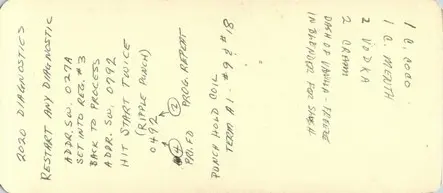 2020 DIAGNOSTICS
RESTART ANY DIAGNOSTIC
ADDR. SW. 027A
SET INTO REG. #3
BACK TO PROCESS
ADDR. SW. 0792
HIT START TWICE
(RIPPLE PUNCH)
0492
2 PROG. REPEAT
4 PRI. FD
PUNCH HOLD COIL
TERM A1 - #9 & #18
1 C. COCO
1 C. MENTH
2 VODKA
2 CREAM
DASH OF VANILLA -
IN BLENDER FOR